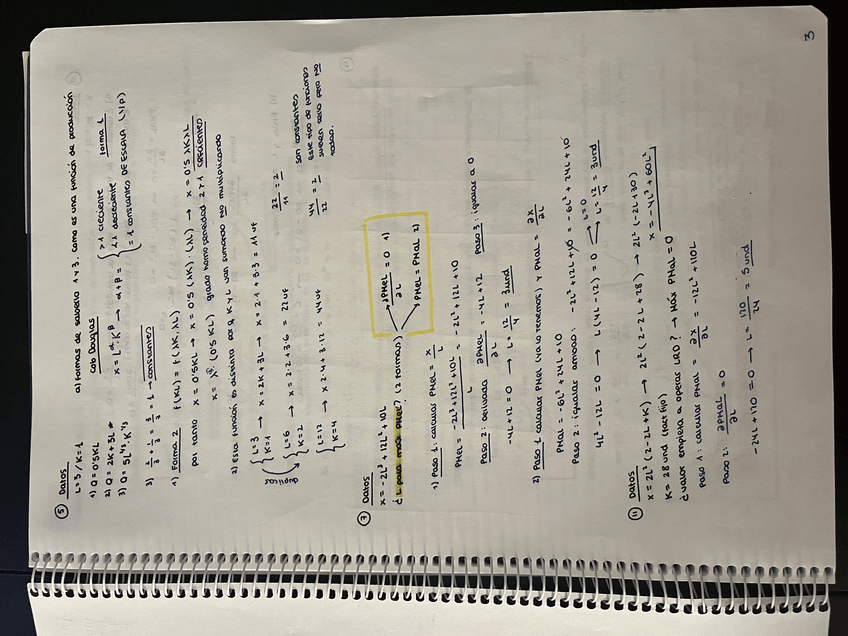 ⑤ Datos
L=3 / K=1
a) Formas de saberlo 1 y 3. Como es una función de producción
1) Q = 0'5KL
cob Douglas
forma 1
2) Q = 2K + 3L *
x = L^α K^β → α+β = { >1 creciente
<1 decreciente
=1 constantes DE ESCALA (Y/P)
3) Q = 5L^1/3 · K^1/3
3) 1/3 + 1/3 = 1 → constantes
1) Forma 2 F(KL) = F(λK, λL)
por tanto x = 0'5KL → x = 0'5 (λK) · (λL) → x = 0'5 λKλL
x = λ² (0'5 KL) grado homogeneidad 2 > 1 crecientes
2) Esta función es distinta pq K y L van sumando no multiplicando
{ L=3 → x = 2K + 3L → x = 2·1 + 3·3 = 11 uf
K=1
duplicas
{ L=6 → x = 2·2 + 3·6 = 22 uf
K=2
22/11 = 2
{ L=12 → x · 2·4 + 3·12 = 44 uf
K=4
44/22 = 2
son constantes
Este tipo de funciones
suelen serlo pero no
todas.
⑦ Datos
x = -2L³ + 12L² + 10L
¿L para máx PMeL? (2 formas)
∂PMeL/∂L = 0 1)
PMeL = PMaL 2)
1) Paso 1: calcular PMeL = x/L
PMeL = -2L³ + 12L² + 10L / L = -2L² + 12L + 10
Paso 2: derivada ∂PMeL/∂L = -4L + 12 Paso 3: igualar a 0
-4L + 12 = 0 → L = 12/4 = 3und
2) Paso 1 calcular PMeL (ya lo tenemos) y PMaL = ∂x/∂L
PMaL = -6L² + 24L + 10
Paso 2: igualar ambos: -2L² + 12L + 10 = -6L² + 24L + 10
4L² - 12L = 0 → L(4L - 12) = 0 → L=0
→ L = 12/4 = 3und
⑪ Datos
x = 2L² (2 - 2L + K) → 2L² (2 - 2L + 28) → 2L² (-2L + 30)
K = 28 und (fact fijo)
x = -4L³ + 60L²
¿valor empieza a operar LRD? → Máx PMaL = 0
Paso 1: calcular PMaL = ∂x/∂L = -12L² + 110L
Paso 2: ∂PMaL/∂L = 0
-24L + 120 = 0 → L = 120/24 = 5 und
3